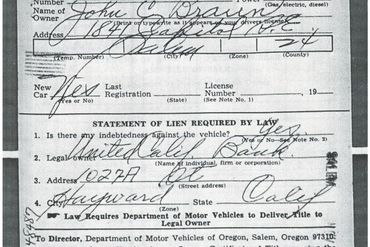 Number
Name of Owner John C Braun
(Print or typewrite as it appears on your drivers license)
(Gas, electric, diesel)
Address 1841
Salem 24
(City) (Zone) (County)
New Car Yes Last Registration License Number , 19
(Yes or No) (State) (See Note No. 1)
STATEMENT OF LIEN REQUIRED BY LAW
1. Is there any indebtedness against the vehicle? Yes.
(Yes or No—See Note No. 2)
2. Legal owner United Calif Bank
(Name of individual, firm or corporation)
3. Address 1027A St
(Street address)
4. Hayward Calif
(City) (Zone) (State)
Law Requires Department of Motor Vehicles to Deliver Title to Legal Owner
To Director, Department of Motor Vehicles of Oregon, Salem, Oregon 97310.